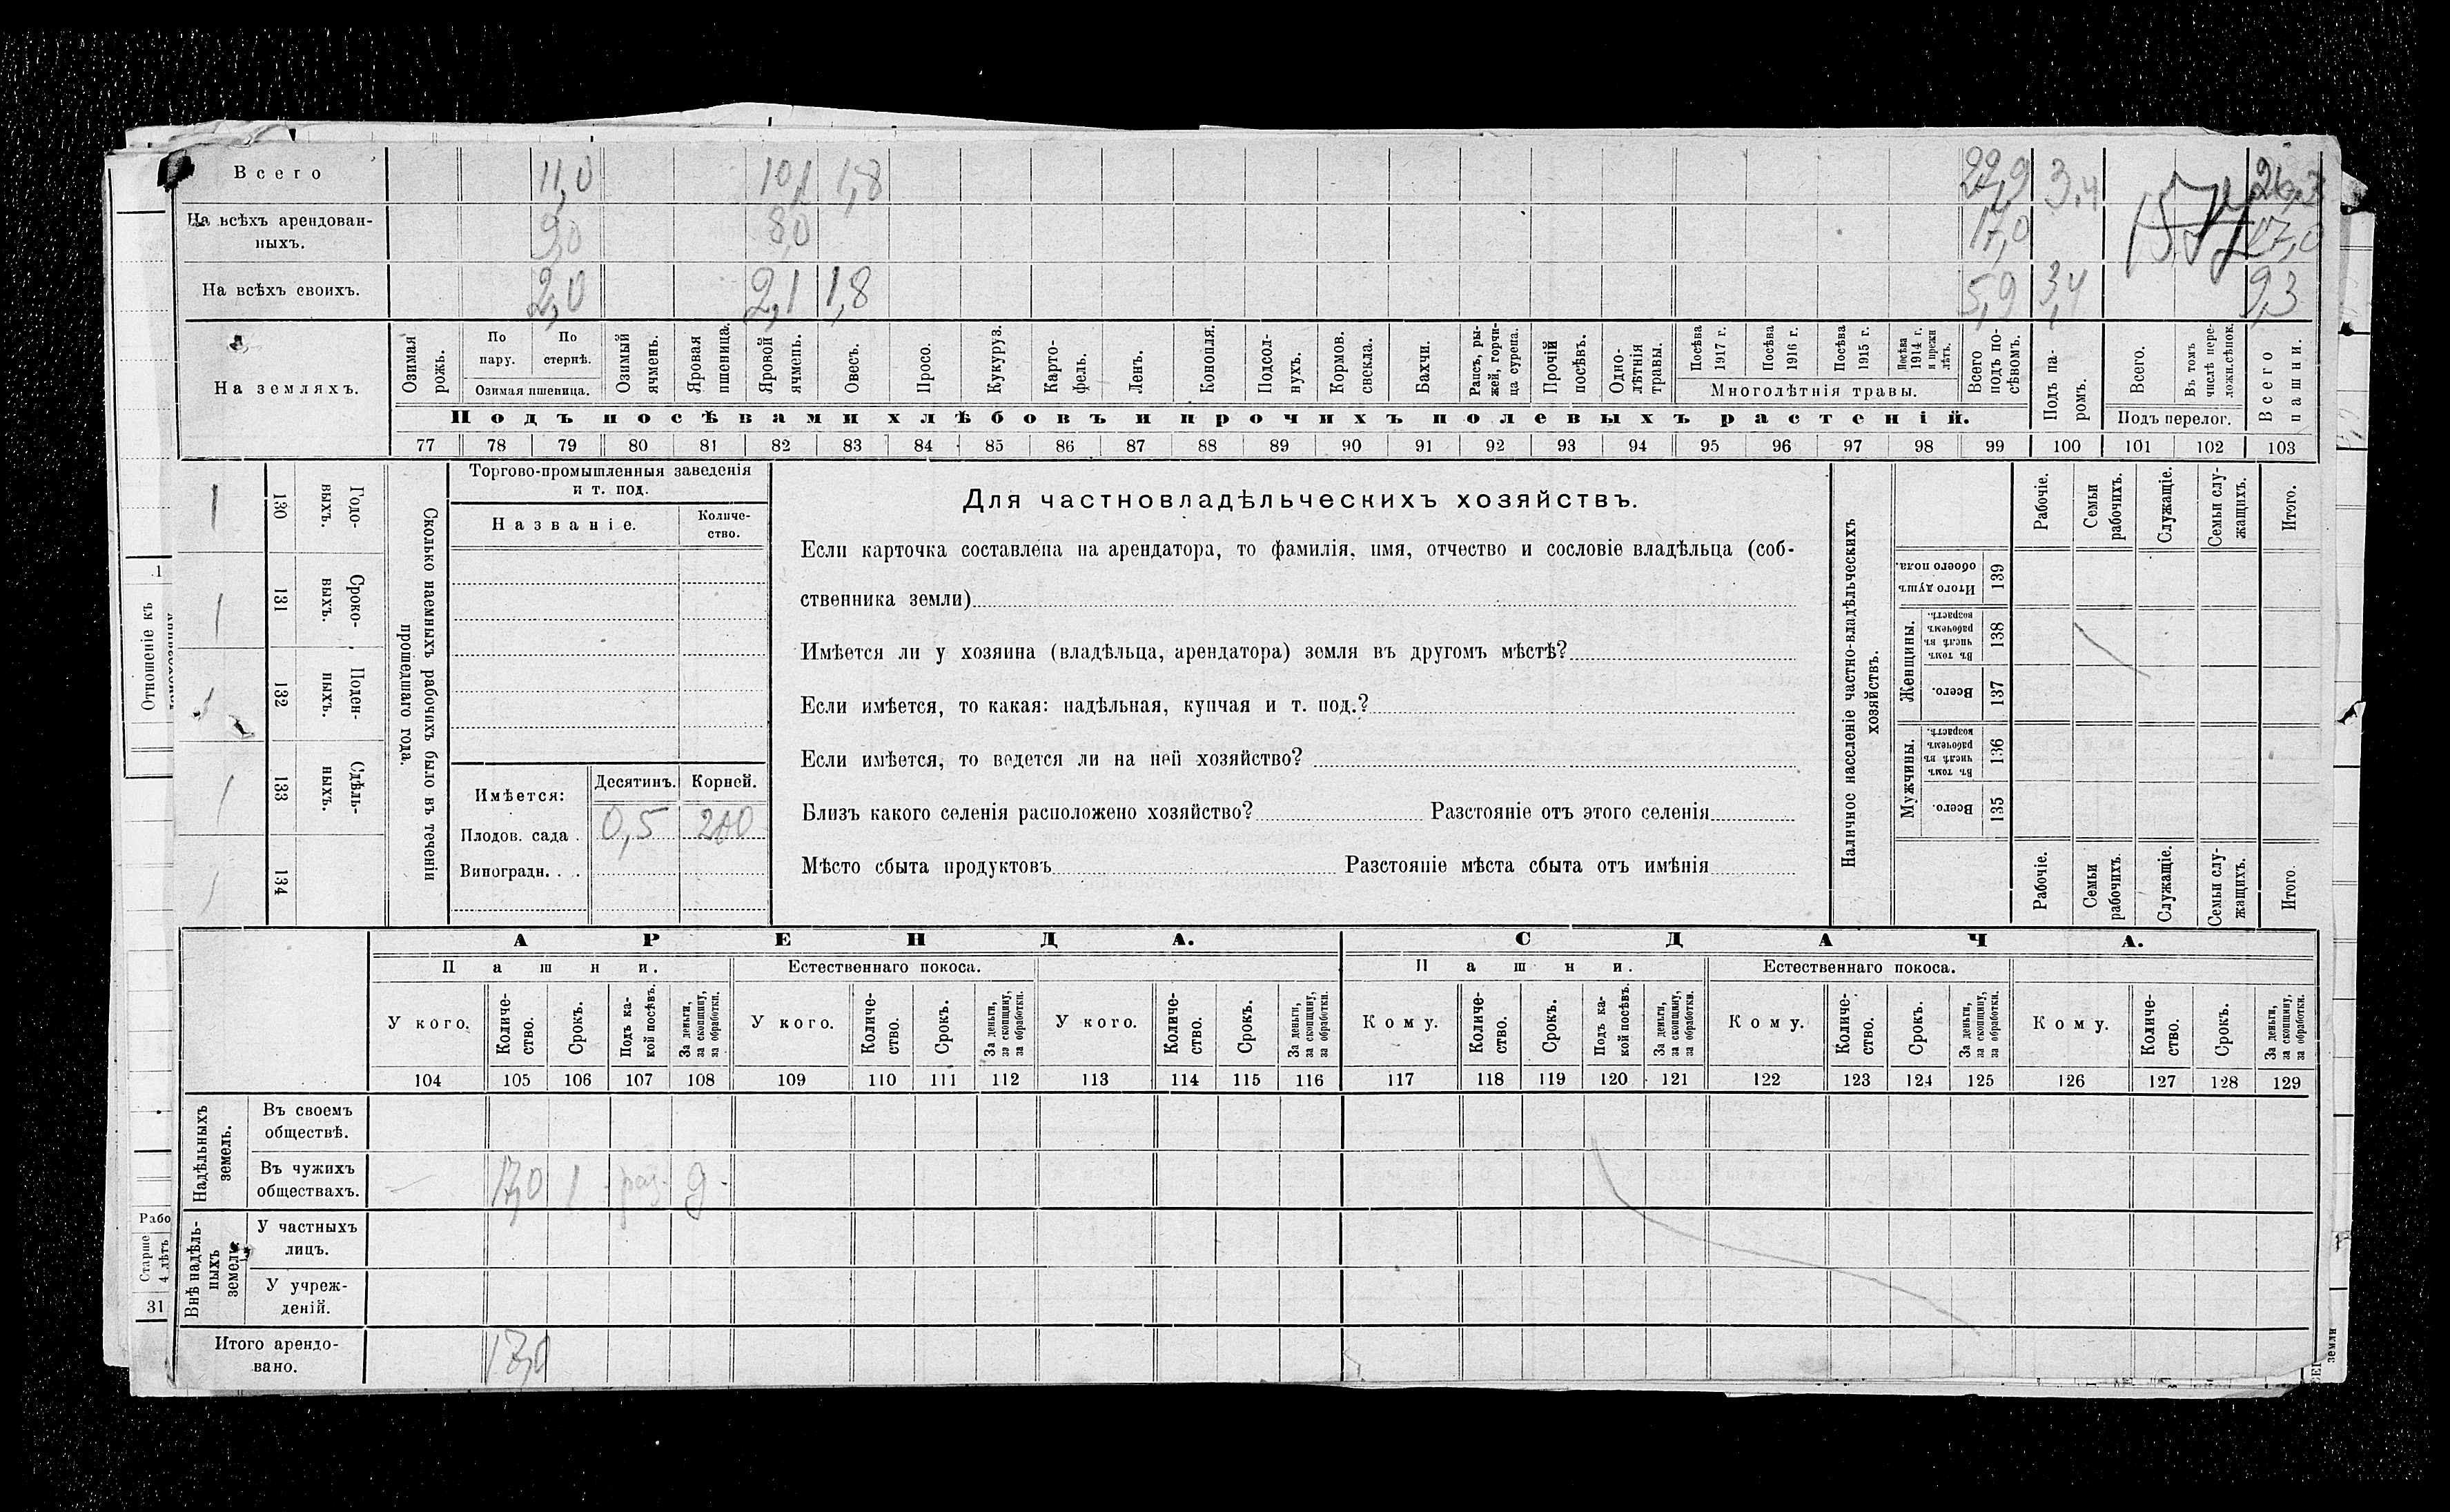 Всего 11,0 10,1 1,8 22,9 3,4 26,3
На всѣхъ арендованныхъ. 9,0 8,0 17,0 17,0
На всѣхъ своихъ. 2,0 2,1 1,8 5,9 3,4 9,3
157
На земляхъ.
Озимая рожь.
По пару.
По стернѣ.
Озимая пшеница.
Озимый ячмень.
Яровая пшеница.
Яровой ячмень.
Овесъ.
Просо.
Кукуруз.
Картофель.
Ленъ.
Конопля.
Подсолнухъ.
Кормов. свекла.
Бахчи.
Рапсъ, рыжей, горчица сурепа.
Прочій посѣвъ.
Однолѣтнія травы.
Посѣва 1917 г.
Посѣва 1916 г.
Посѣва 1915 г.
Посѣва 1914 г. и прежн лѣтъ.
Многолѣтнія травы.
Всего подъ посѣвомъ.
Подъ паромъ.
Всего.
Въ томъ числѣ переложн.сѣнок.
Подъ перелог.
Всего пашни.
Подъ посѣвами хлѣбовъ и прочихъ полевыхъ растеній.
77 78 79 80 81 82 83 84 85 86 87 88 89 90 91 92 93 94 95 96 97 98 99 100 101 102 103
Отношеніе къ
1
Годовыхъ. 130
Сроковыхъ. 131
Поденныхъ. 132
Сдѣльныхъ. 133
134
Сколько наемныхъ рабочихъ было въ теченіи прошедшаго года.
Торгово-промышленныя заведенія
и т. под.
Названіе.
Количество.
Имѣется:
Десятинъ.
Корней.
Плодов. сада . 0,5 200
Виноградн. . .
Для частновладѣльческихъ хозяйствъ.
Если карточка составлена на арендатора, то фамилія, имя, отчество и сословіе владѣльца (соб-
ственника земли)
Имѣется ли у хозяина (владѣльца, арендатора) земля въ другомъ мѣстѣ?
Если имѣется, то какая: надѣльная, купчая и т. под.?
Если имѣется, то ведется ли на ней хозяйство?
Близъ какого селенія расположено хозяйство? Разстояніе отъ этого селенія
Мѣсто сбыта продуктовъ Разстояніе мѣста сбыта отъ имѣнія
Наличное населеніе частно-владѣльческихъ хозяйствъ.
Рабочіе.
Семьи рабочихъ.
Служащіе.
Семьи служащихъ.
Итого.
Итого душъ обоего пола. 139
Женщины.
Въ томъ числѣ въ рабочемъ возрастѣ. 138
Всего. 137
Мужчины.
Въ томъ числѣ въ рабочемъ возрастѣ. 136
Всего. 135
Рабочіе.
Семьи рабочихъ.
Служащіе.
Семьи служащихъ.
Итого.
АРЕНДА. СДАЧА.
Пашни. Естественнаго покоса. Пашни. Естественнаго покоса.
У кого.
Количество.
Срокъ.
Подъ какой посѣвъ.
За деньги, за скопщину, за обработки.
У кого.
Количество.
Срокъ.
За деньги, за скопщину, за обработки.
У кого.
Количество.
Срокъ.
За деньги, за скопщину, за обработки.
Кому.
Количество.
Срокъ.
Подъ какой посѣвъ.
За деньги, за скопщину, за обработки.
Кому.
Количество.
Срокъ.
За деньги, за скопщину, за обработки.
Кому.
Количество.
Срокъ.
За деньги, за скопщину, за обработки.
104 105 106 107 108 109 110 111 112 113 114 115 116 117 118 119 120 121 122 123 124 125 126 127 128 129
Надѣльныхъ земель.
Въ своемъ
обществѣ.
Въ чужихъ
обществахъ. 17,0 1 раз. д.
Внѣ надѣльныхъ земель.
У частныхъ
лицъ.
У учреж-
деній.
Итого арендо-
вано. 17,0
Рабо
Старше
4 лѣтъ
31
земли